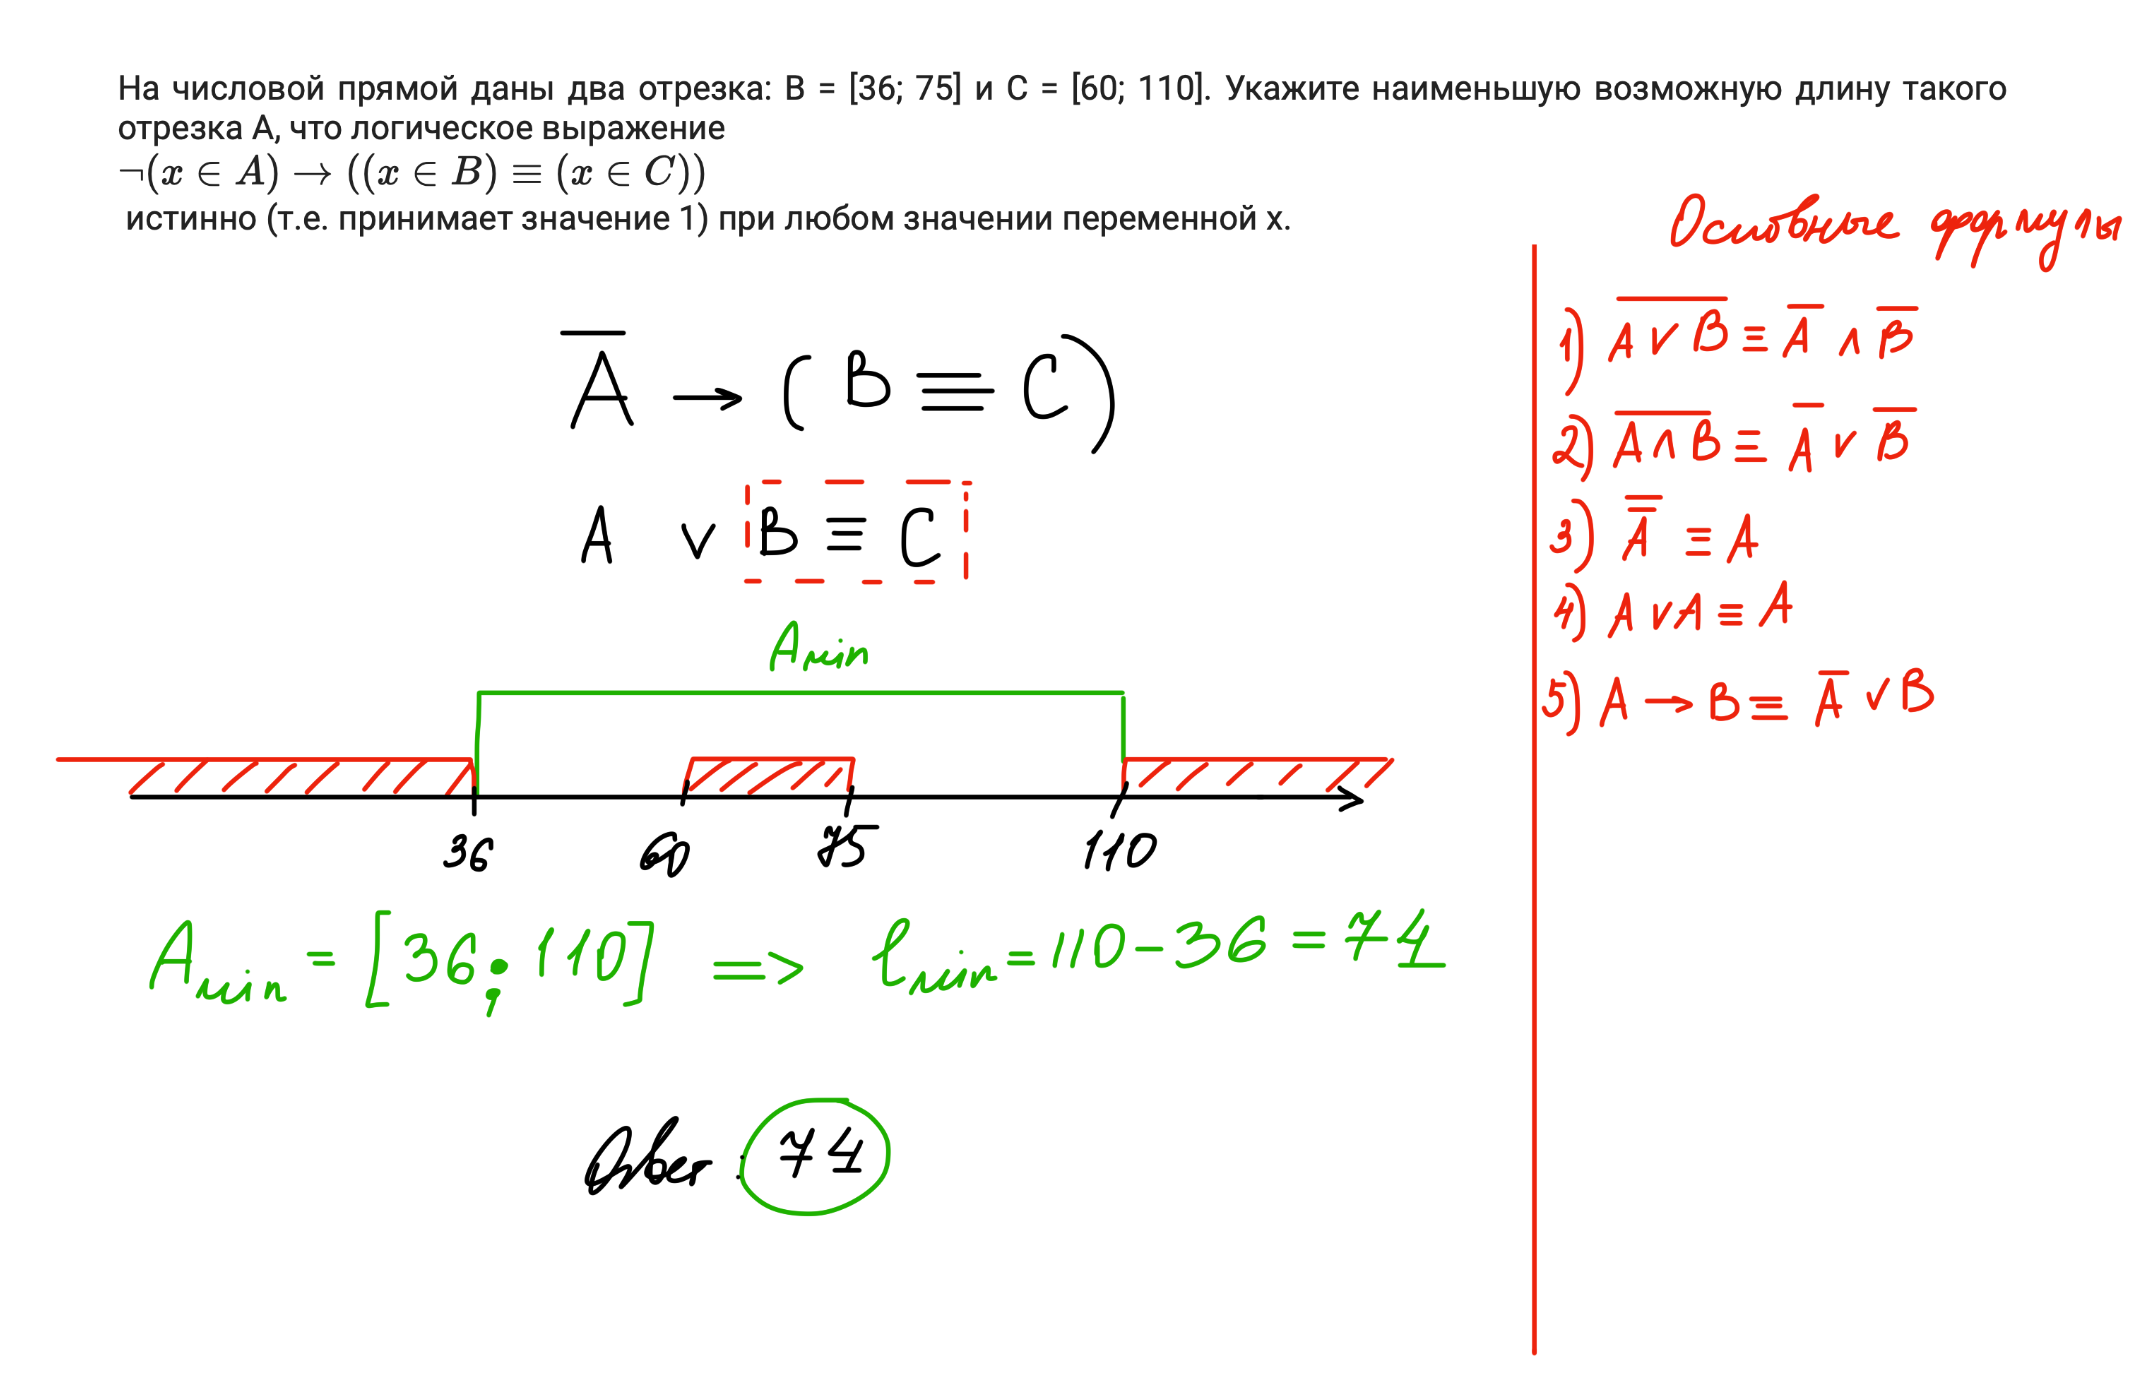 На числовой прямой даны два отрезка: B = [36; 75] и C = [60; 110]. Укажите наименьшую возможную длину такого
отрезка A, что логическое выражение
¬(x ∈ A) → ((x ∈ B) ≡ (x ∈ C))
истинно (т.е. принимает значение 1) при любом значении переменной x.
A̅ → (B ≡ C)
A ∨ B ≡ C
Amin
36 60 75 110
Amin = [36; 110] => lmin = 110 - 36 = 74
Ответ: 74
Основные формулы
1) \overline{A ∨ B} ≡ A̅ ∧ B̅
2) \overline{A ∧ B} ≡ A̅ ∨ B̅
3) A̿ ≡ A
4) A ∨ A ≡ A
5) A → B ≡ A̅ ∨ B